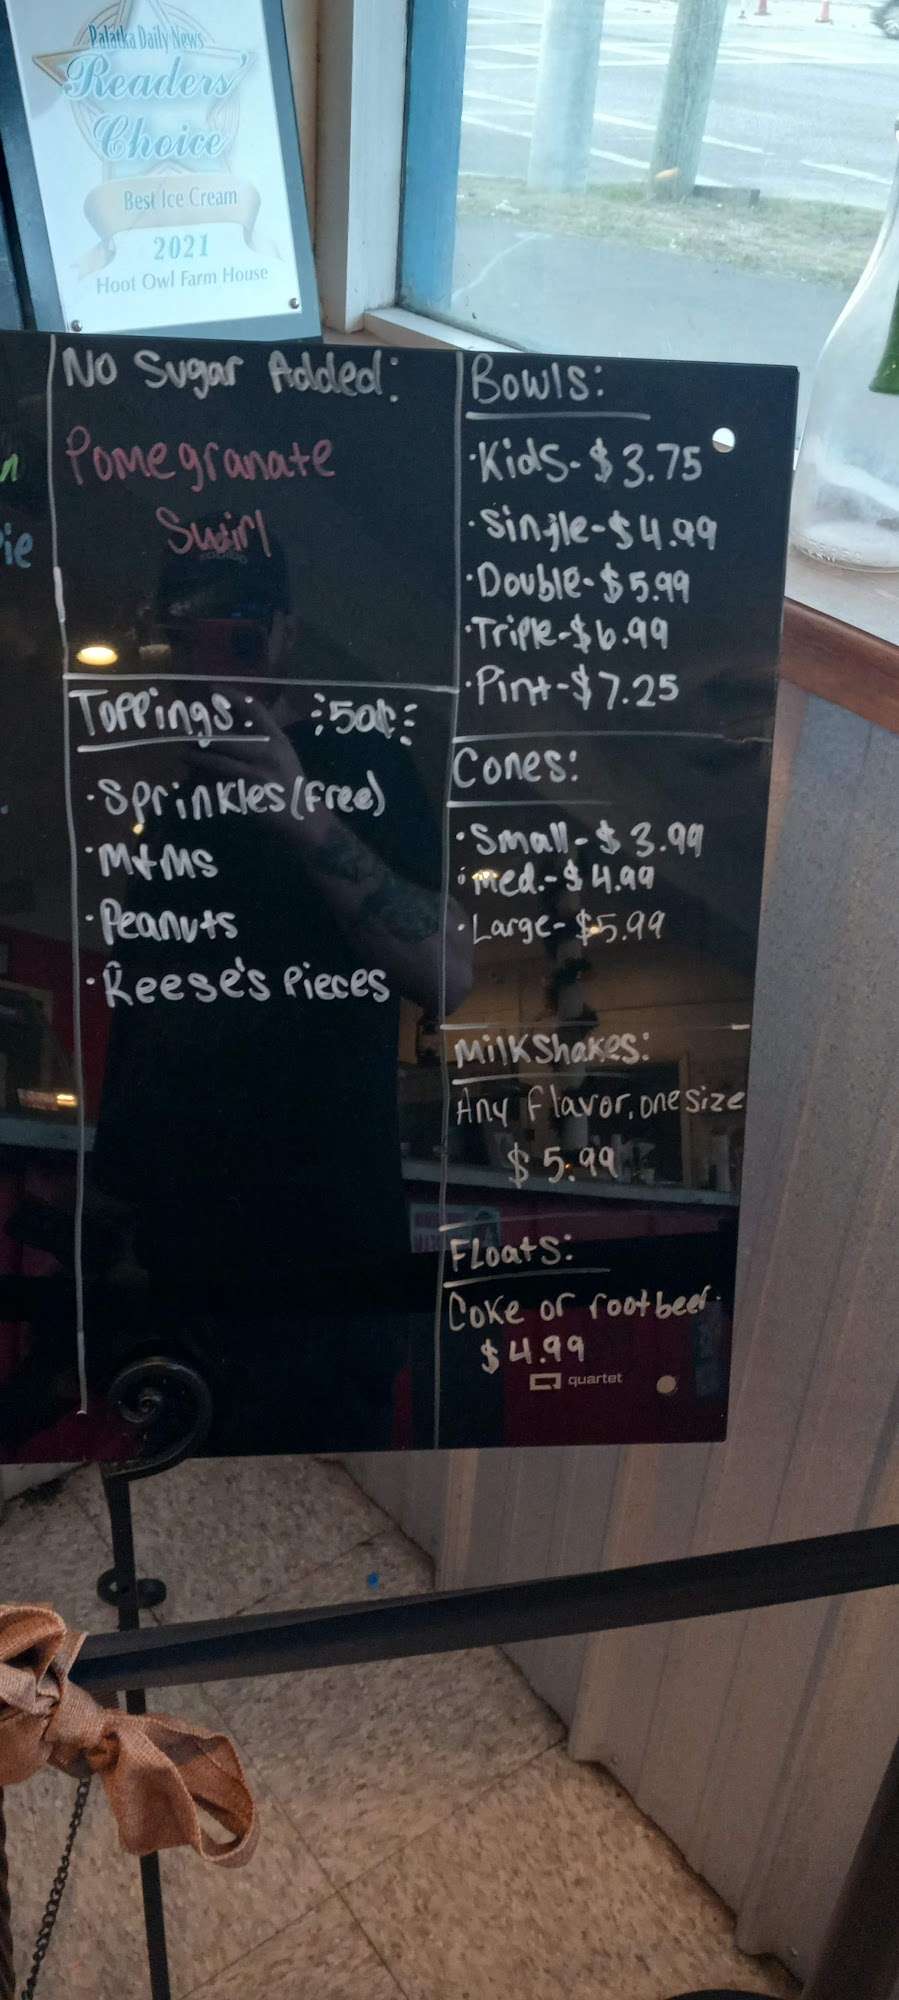 Palatka Daily News
Readers'
Choice
Best Ice Cream
2021
Hoot Owl Farm House
No Sugar Added:
Pomegranate
Swirl
Toppings: 50¢
·Sprinkles (free)
·M&Ms
·Peanuts
·Reese's Pieces
Bowls:
·Kids-$3.75
·Single-$4.99
·Double-$5.99
·Triple-$6.99
·Pint-$7.25
Cones:
·Small-$3.99
·med.-$4.99
·Large-$5.99
Milkshakes:
Any flavor, one size
$5.99
Floats:
Coke or rootbeer.
$4.99
quartet